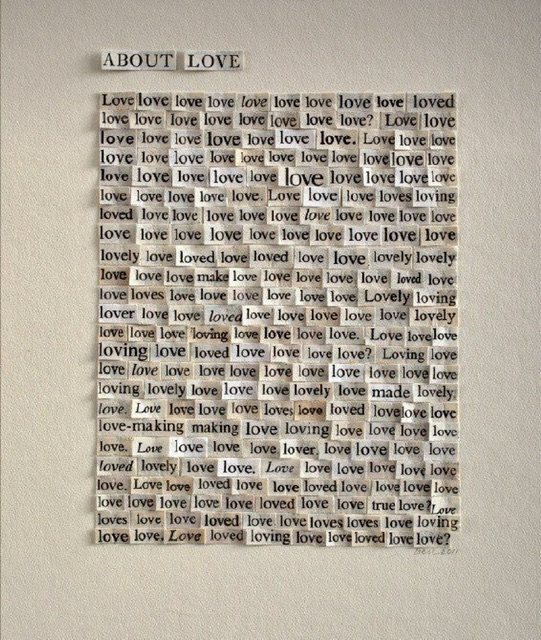 ABOUT LOVE
Love love love love love love love love love loved
love love love love love love love love? Love love
love love love love love love love. Love love love
love love love love love love love love love love love
love love love love love love love love love love
love love love love love. Love love love loves loving
loved love love love love love love love love love love
love love love love love love love love love love
lovely love loved love loved love love lovely lovely
love love love make love love love love love loved love
love loves love love love love love love Lovely loving
lover love love loved love love love love love lovely
love love love loving love love love love. Love love love
loving love loved love love love love? Loving love
love love love love love love love love love love love
loving lovely love love love lovely love made lovely
love. Love love love love loves love loved love love love
love-making making love loving love love love love
love. Love love love love lover, love love love love
loved lovely love love. Love love love love love love
love. Love love loved love love loved love love love love
love love love love love loved love love true love? Love
loves love love loved love love loves loves love loving
love love. Love loved loving love love loved love love?